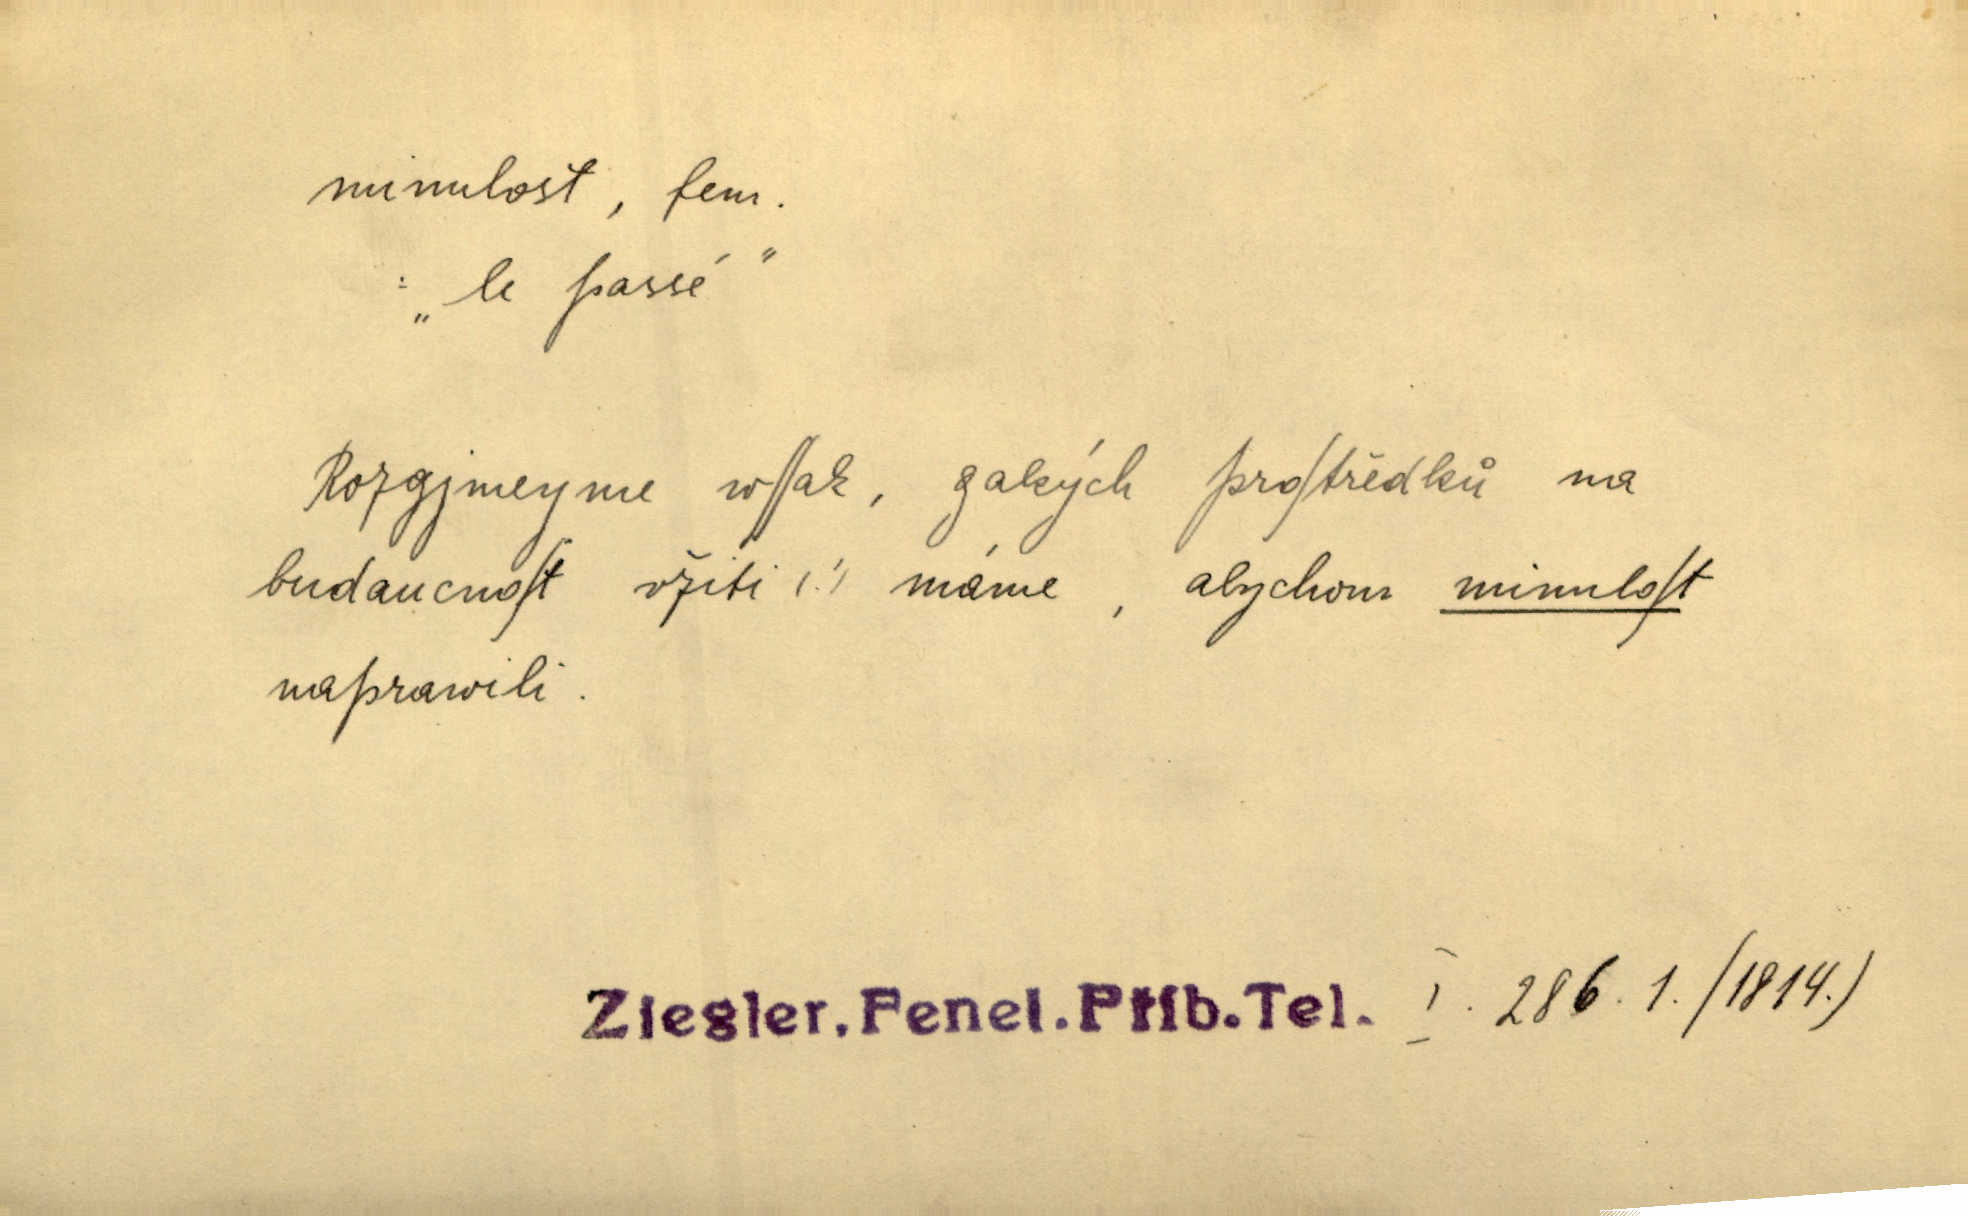 minulost, fem.
: „le passé"
Rozgjmeyme wſſak, gakých proſtředků na
budaucnoſt vžiti (!) máme, abychom minuloſt
naprawili.
Ziegler. Fenel. Příb. Tel. I. 286. 1. (1814.)